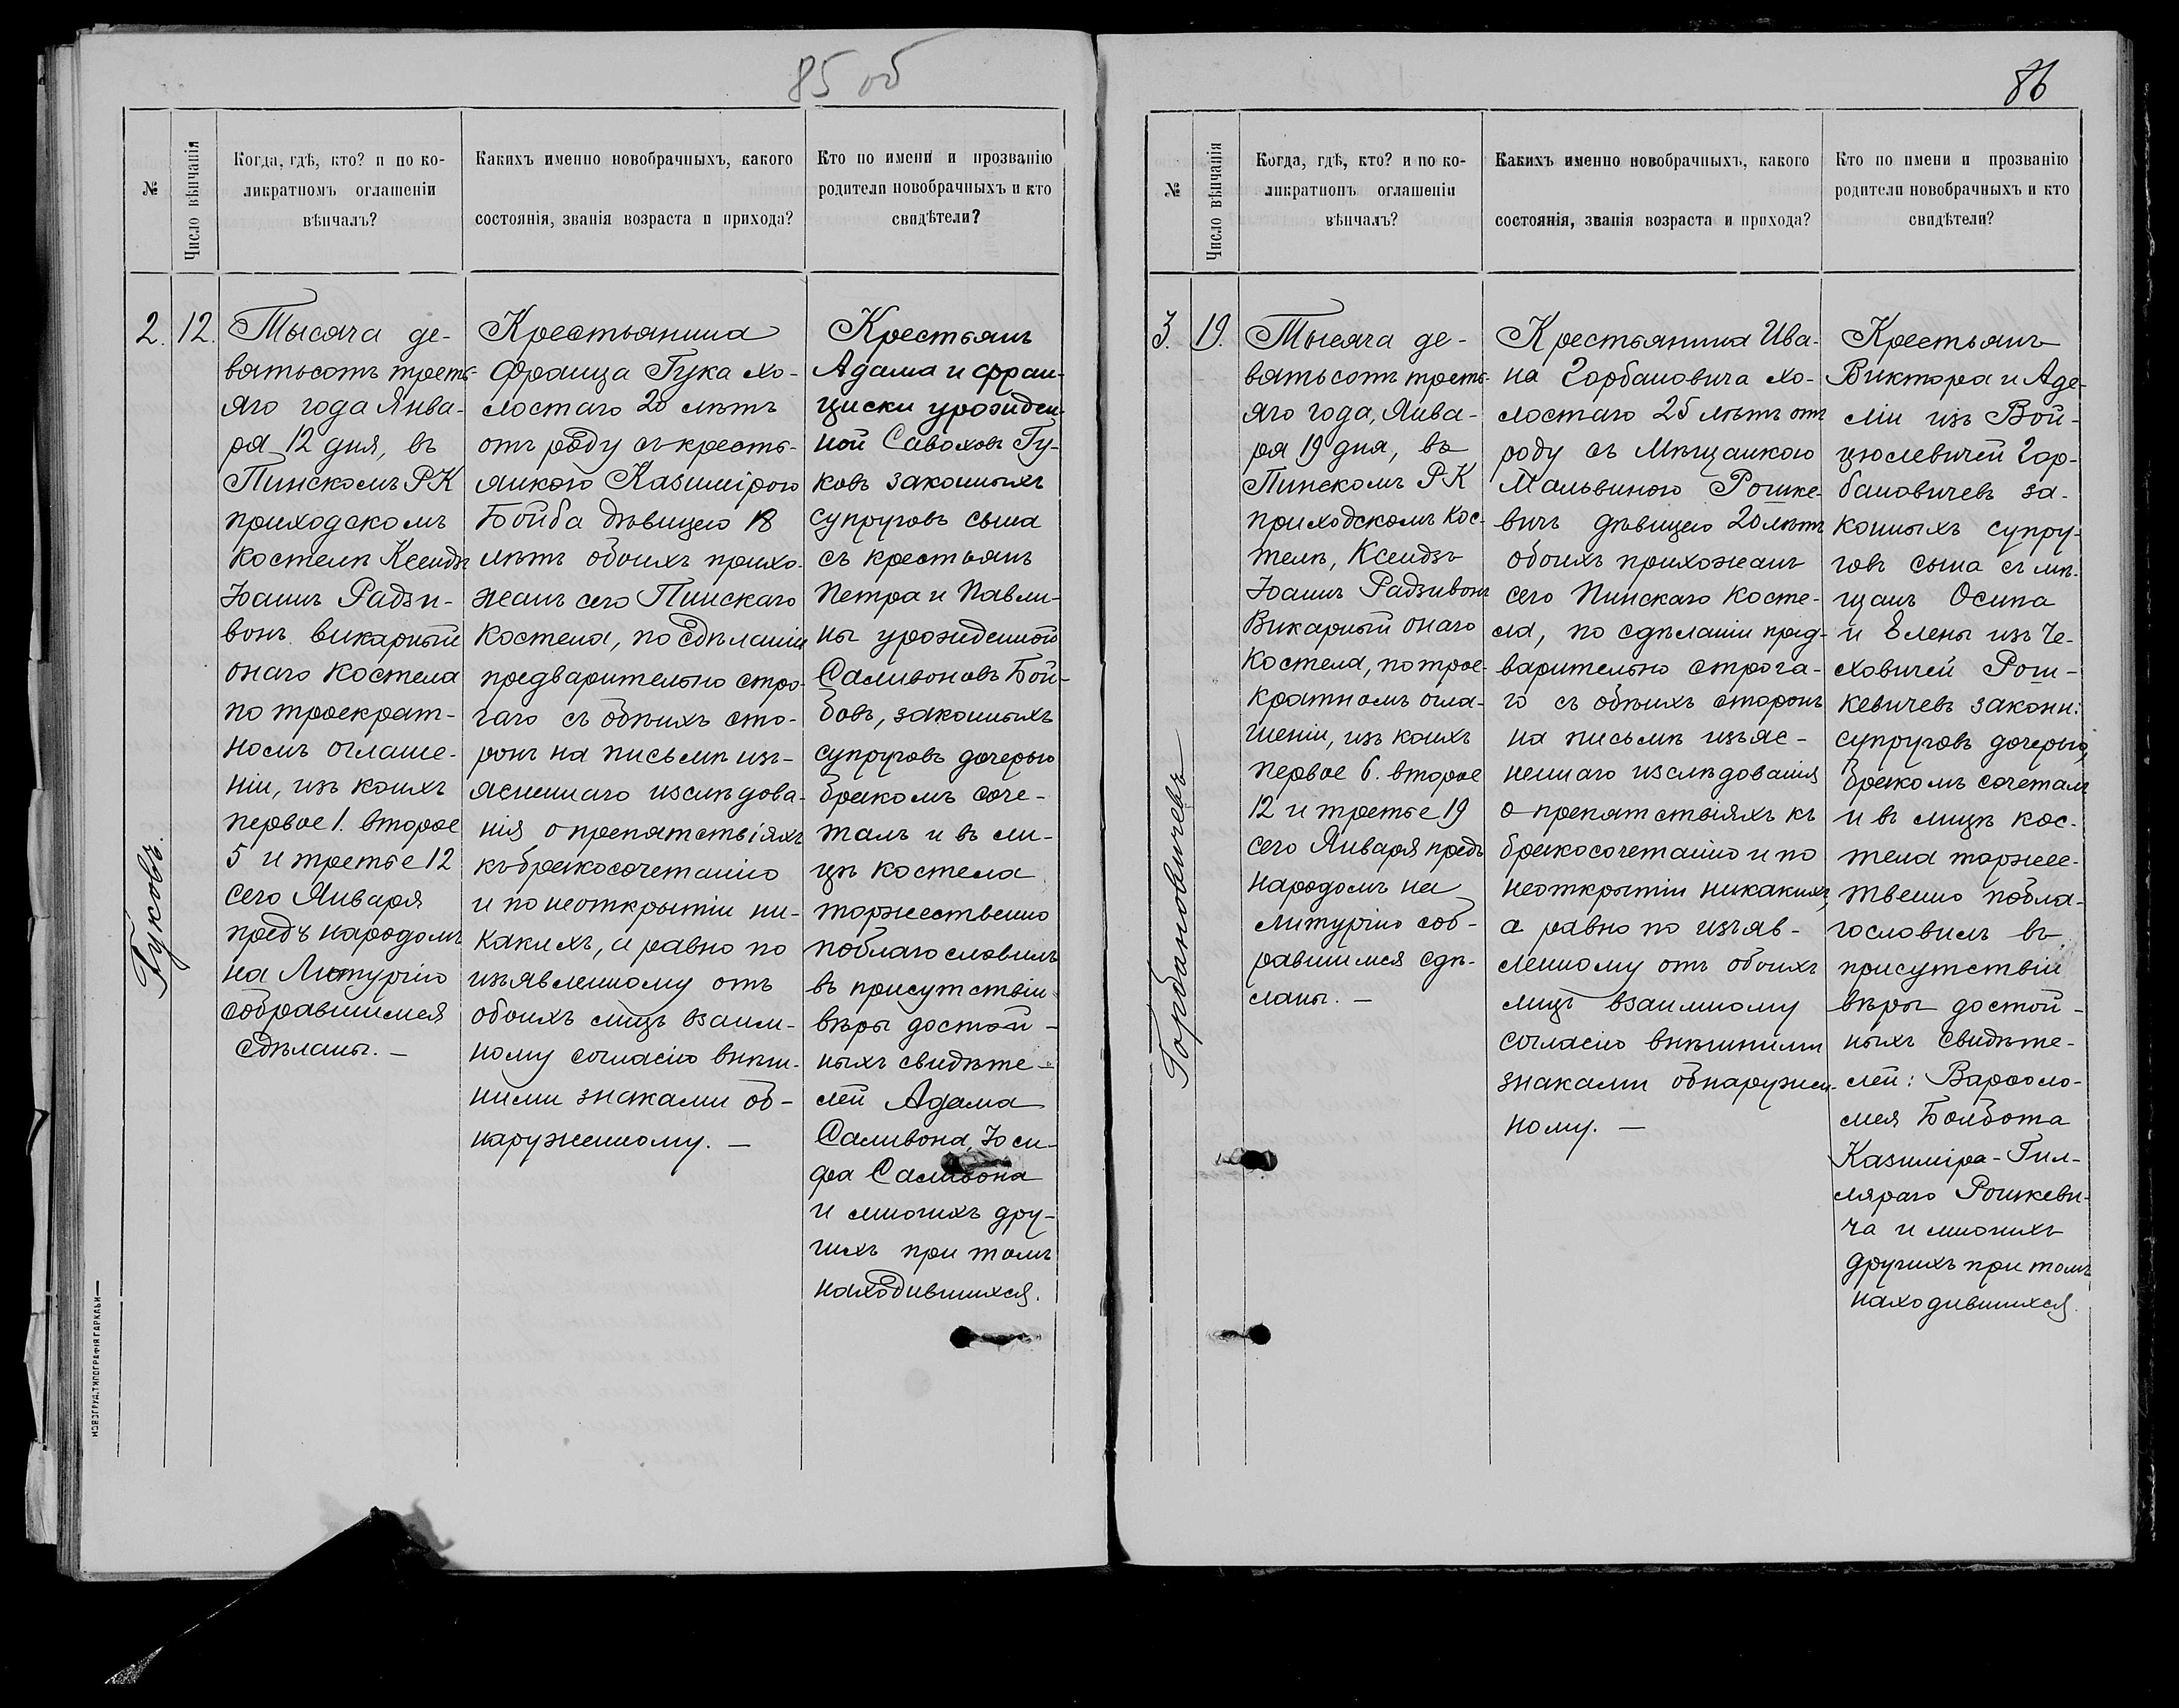 85 об
№
Число вѣнчанія
Когда, гдѣ, кто? и по ко-
ликратномъ оглашеніи
вѣнчалъ?
Какихъ именно новобрачныхъ, какого
состоянія, званія возраста и прихода?
Кто по имени и прозванію
родители новобрачныхъ и кто
свидѣтели?
Гуковъ.
2.
12.
Тысяча де-
вятьсотъ треть-
яго года Янва-
ря 12 дня, въ
Пинскомъ РК
приходскомъ
костелѣ Ксендзъ
Іоаннъ Радзи-
вонъ викарный
онаго костела
по троекрат-
номъ оглаше-
ніи, изъ коихъ
первое 1. второе
5 и третье 12
сего Января
предъ народомъ
на Литургію
собравшимся
сдѣланы. —
Крестьянина
Франца Гука хо-
лостаго 20 лѣтъ
отъ роду съ кресть-
янкою Казимірою
Бойба дѣвицею 18
лѣтъ обоихъ прихо-
жанъ сего Пинскаго
костела, по сдѣланіи
предварительно стро-
гаго съ обѣихъ сто-
ронъ на письмѣ изъ-
ясненнаго изслѣдова-
нія о препятствіяхъ
къ бракосочетанію
и по неоткрытіи ни-
какихъ, а равно по
изъявленному отъ
обоихъ лицъ взаим-
ному согласію внѣш-
ними знаками об-
наруженному. —
Крестьянъ
Адама и Фран-
циски урожден-
ной Саволовъ Гу-
ковъ законныхъ
супруговъ сына
съ крестьянъ
Петра и Павли-
ны урожденной
Саливоновъ Бой-
бовъ, законныхъ
супруговъ дочерью
бракомъ соче-
талъ и въ ли-
цѣ костела
торжественно
поблагословилъ
въ присутствіи
вѣры достой-
ныхъ свидѣте-
лей Адама
Саливона, Іоси-
фа Саливона
и многихъ дру-
гихъ при томъ
находившихся.
НОВОГРУД. ТИПОГРАФІЯ ГАРКАВИ
86
№
Число вѣнчанія
Когда, гдѣ, кто? и по ко-
ликратномъ оглашеніи
вѣнчалъ?
Какихъ именно новобрачныхъ, какого
состоянія, званія возраста и прихода?
Кто по имени и прозванію
родители новобрачныхъ и кто
свидѣтели?
Горбановичевъ
3.
19.
Тысяча де-
вятьсотъ треть-
яго года, Янва-
ря 19 дня, въ
Пинскомъ РК
приходскомъ кос-
телѣ, Ксендзъ
Іоаннъ Радзивонъ
Викарный онаго
костела, по трое-
кратномъ огла-
шеніи, изъ коихъ
первое 6. второе
12 и третье 19
сего Января предъ
народомъ на
литургію соб-
равшимся сдѣ-
ланы. —
Крестьянина Ива-
на Горбановича хо-
лостаго 25 лѣтъ отъ
роду съ Мѣщанкою
Мальвиною Рошке-
вичъ дѣвицею 20 лѣтъ
обоихъ прихожанъ
сего Пинскаго Косте-
ла, по сдѣланіи пред-
варительно строга-
го съ обѣихъ сторонъ
на письмѣ изъяс-
неннаго изслѣдованія
о препятствіяхъ къ
бракосочетанію и по
неоткрытіи никакихъ,
а равно по изъяв-
ленному отъ обоихъ
лицъ взаимному
согласію внѣшними
знаками обнаружен-
ному. —
Крестьянъ
Виктора и Аде-
ліи изъ Вой-
цюлевичей Гор-
бановичевъ за-
конныхъ супру-
говъ сына съ мѣ-
щанъ Осипа
и Елены изъ Че-
ховичей Рош-
кевичевъ законн:
супруговъ дочерью,
бракомъ сочеталъ
и въ лицѣ кос-
тела торжес-
твенно побла-
гословилъ въ
присутствіи
вѣры достой-
ныхъ свидѣте-
лей: Варфоло-
мея Болбота
Казиміра-Гил-
ляраго Рошкеви-
ча и многихъ
другихъ при томъ
находившихся.